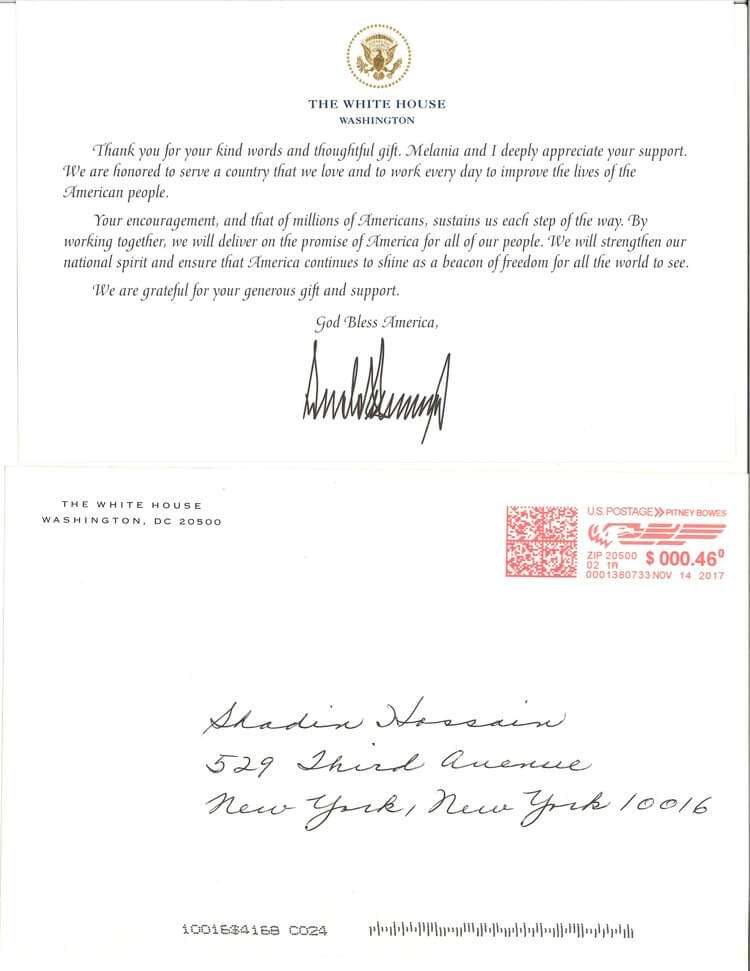 THE WHITE HOUSE
WASHINGTON
Thank you for your kind words and thoughtful gift. Melania and I deeply appreciate your support.
We are honored to serve a country that we love and to work every day to improve the lives of the
American people.
Your encouragement, and that of millions of Americans, sustains us each step of the way. By
working together, we will deliver on the promise of America for all of our people. We will strengthen our
national spirit and ensure that America continues to shine as a beacon of freedom for all the world to see.
We are grateful for your generous gift and support.
God Bless America,
THE WHITE HOUSE
WASHINGTON, DC 20500
U.S. POSTAGE PITNEY BOWES
ZIP 20500 $ 000.46⁰
02 1R
0001380733 NOV 14 2017
Shadin Hossain
529 Third Avenue
New York, New York 10016
10016$4168 C024